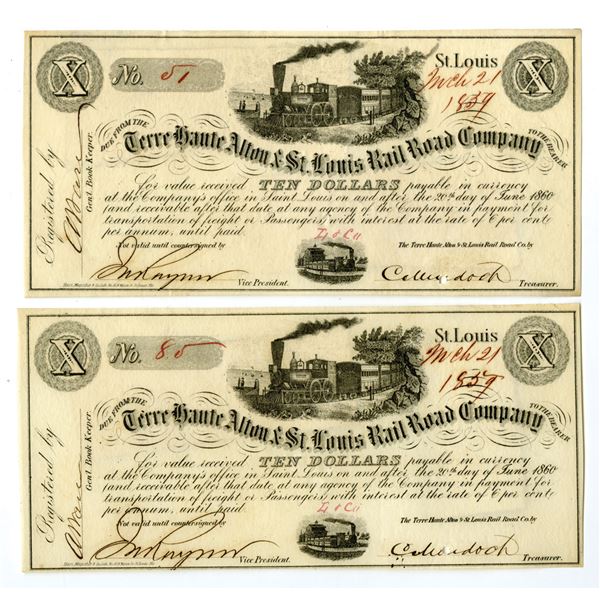 X
No. 51
St. Louis
Mch 21
1859
X
DUE FROM THE
Terre Haute Alton & St. Louis Rail Road Company
TO THE BEARER
For value received TEN DOLLARS payable in currency
at the Company's office in Saint Louis on and after the 20th day of June 1860
(and receivable after that date at any agency of the Company in payment for
transportation of freight or Passengers) with interest at the rate of 6 per cent
per annum, until paid.
Registered by
Genl. Book Keeper.
Not valid until countersigned by
The Terre Haute Alton & St Louis Rail Road Co. by
Vice President.
C. Murdoch
Treasurer.
X
No. 85
St. Louis
Mch 21
1859
X
DUE FROM THE
Terre Haute Alton & St. Louis Rail Road Company
TO THE BEARER
For value received TEN DOLLARS payable in currency
at the Company's office in Saint Louis on and after the 20th day of June 1860
(and receivable after that date at any agency of the Company in payment for
transportation of freight or Passengers) with interest at the rate of 6 per cent
per annum, until paid.
Registered by
Genl. Book Keeper.
Not valid until countersigned by
The Terre Haute Alton & St Louis Rail Road Co. by
Vice President.
C. Murdoch
Treasurer.